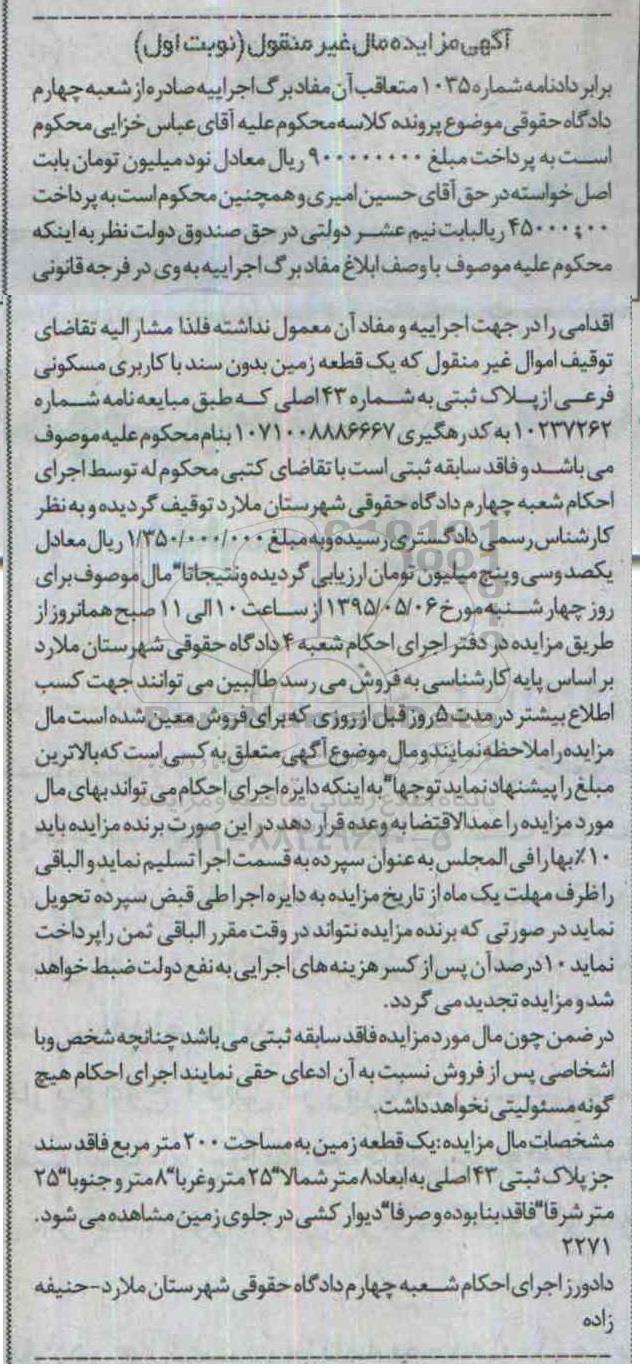 آگهی مزایده مال غیر منقول (نوبت اول)
برابر دادنامه شماره ۱۰۳۵ متعاقب آن مفاد برگ اجراییه صادره از شعبه چهارم
دادگاه حقوقی موضوع پرونده کلاسه محکوم علیه آقای عباس خزایی محکوم
است به پرداخت مبلغ ۹۰۰۰۰۰۰۰۰ ریال معادل نود میلیون تومان بابت
اصل خواسته در حق آقای حسین امیری و همچنین محکوم است به پرداخت
ریالبابت نیم عشر دولتی در حق صندوق دولت نظر به اینکه
محکوم علیه موصوف با وصف ابلاغ مفاد برگ اجراییه به وی در فرجه قانونی
اقدامی را در جهت اجراییه و مفاد آن معمول نداشته فلذا مشار الیه تقاضای
توقیف اموال غیر منقول که یک قطعه زمین بدون سند با کاربری مسکونی
فرعی از پلاک ثبتی به شماره ۴۳ اصلی که طبق مبایعه نامه شماره
۱۰۲۳۷۲۶۲ به کد رهگیری ۱۰۷۱۰۰۸۸۸۶۶۶۷ بنام محکوم علیه موصوف
می باشد و فاقد سابقه ثبتی است با تقاضای کتبی محکوم له توسط اجرای
احکام شعبه چهارم دادگاه حقوقی شهرستان ملارد توقیف گردیده و به نظر
کارشناس رسمی دادگستری رسیده وبه مبلغ ۱/۳۵۰/۰۰۰/۰۰۰ ریال معادل
یکصد وسی و پنج میلیون تومان ارزیابی گردیده ونتیجاتا" مال موصوف برای
روز چهار شنبه مورخ ۱۳۹۵/۰۵/۰۶ از ساعت ۱۰ الی ۱۱ صبح همانروز از
طریق مزایده در دفتر اجرای احکام شعبه ۴ دادگاه حقوقی شهرستان ملارد
بر اساس پایه کارشناسی به فروش می رسد طالبین می توانند جهت کسب
اطلاع بیشتر در مدت ۵ روز قبل از روزی که برای فروش معین شده است مال
مزایده را ملاحظه نمایند و مال موضوع آگهی متعلق به کسی است که بالاترین
مبلغ را پیشنهاد نماید توجها" به اینکه دایره اجرای احکام می تواند بهای مال
مورد مزایده را عمدالاقتضا به وعده قرار دهد در این صورت برنده مزایده باید
۱۰٪ بها را فی المجلس به عنوان سپرده به قسمت اجرا تسلیم نماید و الباقی
را ظرف مهلت یک ماه از تاریخ مزایده به دایره اجرا طی قبض سپرده تحویل
نماید در صورتی که برنده مزایده نتواند در وقت مقرر الباقی ثمن را پرداخت
نماید ۱۰ درصد آن پس از کسر هزینه های اجرایی به نفع دولت ضبط خواهد
شد و مزایده تجدید می گردد.
در ضمن چون مال مورد مزایده فاقد سابقه ثبتی می باشد چنانچه شخص ویا
اشخاصی پس از فروش نسبت به آن ادعای حقی نمایند اجرای احکام هیچ
گونه مسئولیتی نخواهد داشت.
مشخصات مال مزایده: یک قطعه زمین به مساحت ۲۰۰ متر مربع فاقد سند
جز پلاک ثبتی ۴۳ اصلی به ابعاد ۸ متر شمالا" ۲۵ متر و غربا" ۸ متر و جنوبا" ۲۵
متر شرقا" فاقد بنا بوده و صرفا" دیوار کشی در جلوی زمین مشاهده می شود.
۲۲۷۱
دادورز اجرای احکام شعبه چهارم دادگاه حقوقی شهرستان ملارد - حنیفه
زاده